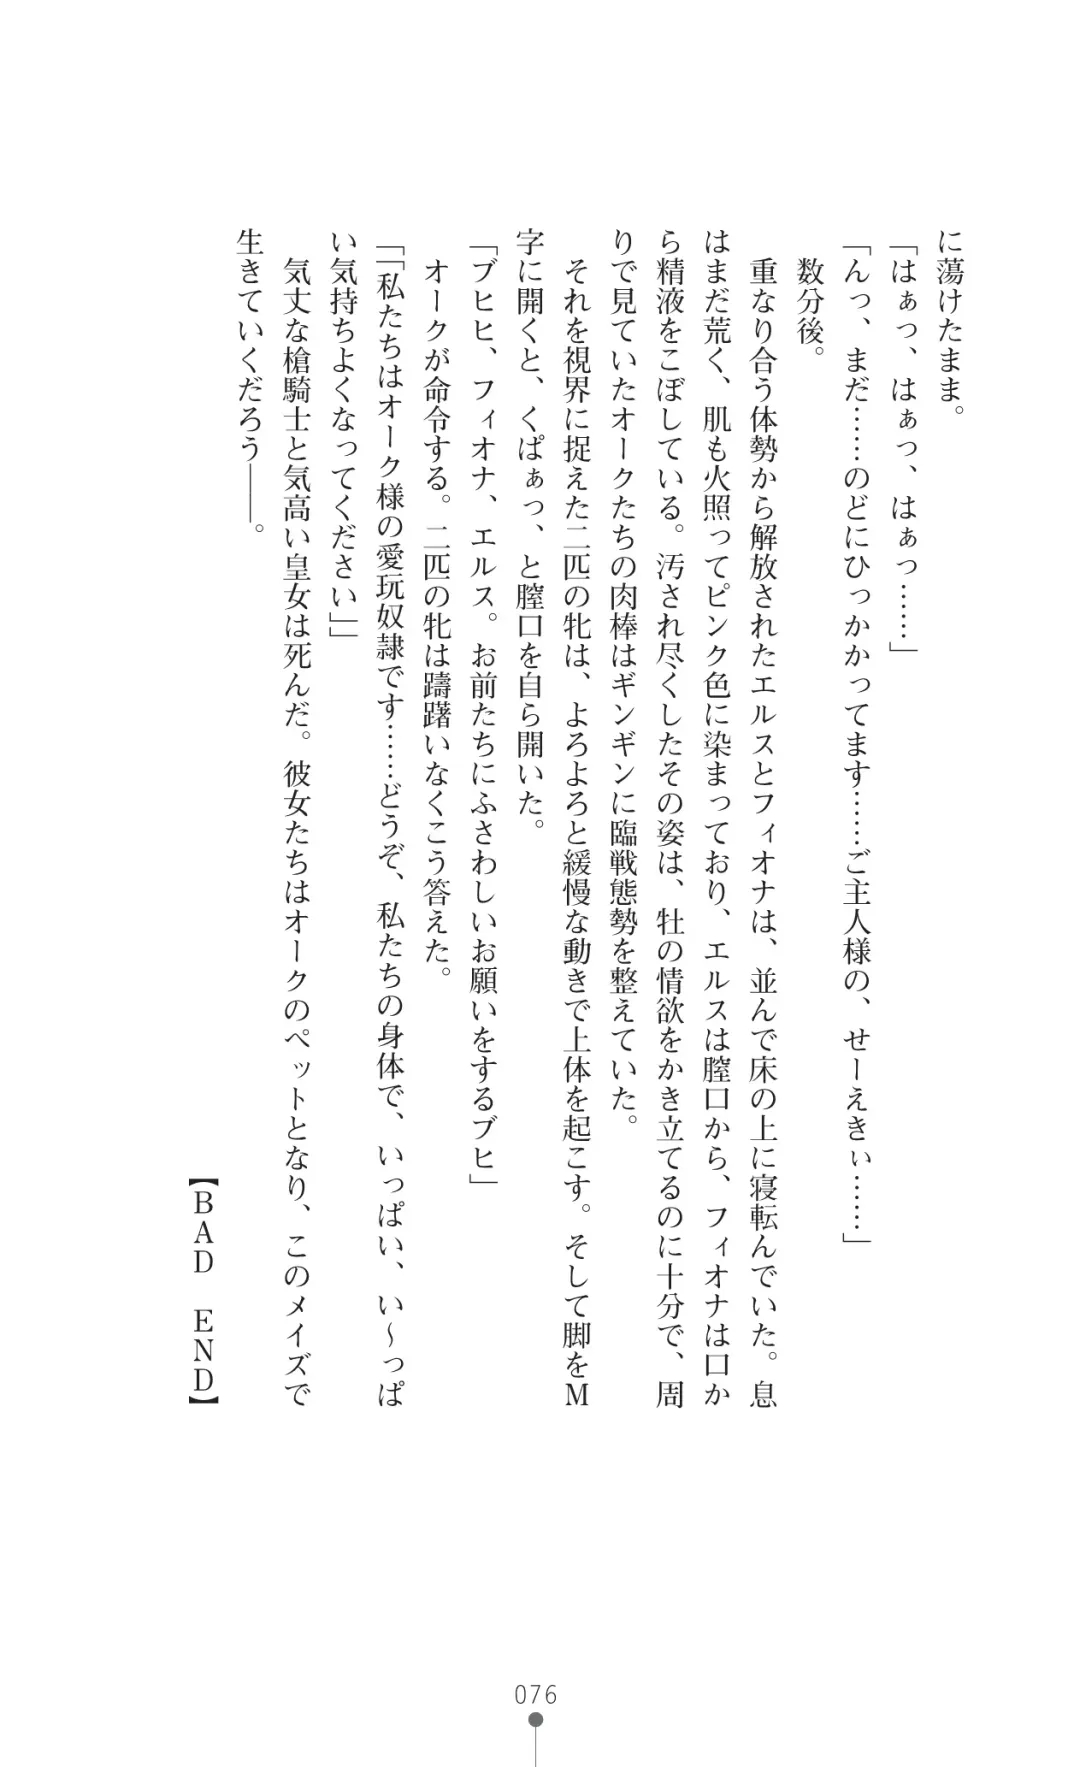 に蕩けたまま。
「はぁっ、はぁっ、はぁっ……」
「んっ、まだ……のどにひっかかってます……ご主人様の、せーえきぃ……」
数分後。
重なり合う体勢から解放されたエルスとフィオナは、並んで床の上に寝転んでいた。息
はまだ荒く、肌も火照ってピンク色に染まっており、エルスは膣口から、フィオナは口か
ら精液をこぼしている。汚され尽くしたその姿は、牡の情欲をかき立てるのに十分で、周
りで見ていたオークたちの肉棒はギンギンに臨戦態勢を整えていた。
それを視界に捉えた二匹の牝は、よろよろと緩慢な動きで上体を起こす。そして脚をＭ
字に開くと、くぱぁっ、と膣口を自ら開いた。
「ブヒヒ、フィオナ、エルス。お前たちにふさわしいお願いをするブヒ」
オークが命令する。二匹の牝は躊躇いなくこう答えた。
「「私たちはオーク様の愛玩奴隷です……どうぞ、私たちの身体で、いっぱい、い～っぱ
い気持ちよくなってください」」
気丈な槍騎士と気高い皇女は死んだ。彼女たちはオークのペットとなり、このメイズで
生きていくだろう――。
【ＢＡＤ　ＥＮＤ】
076